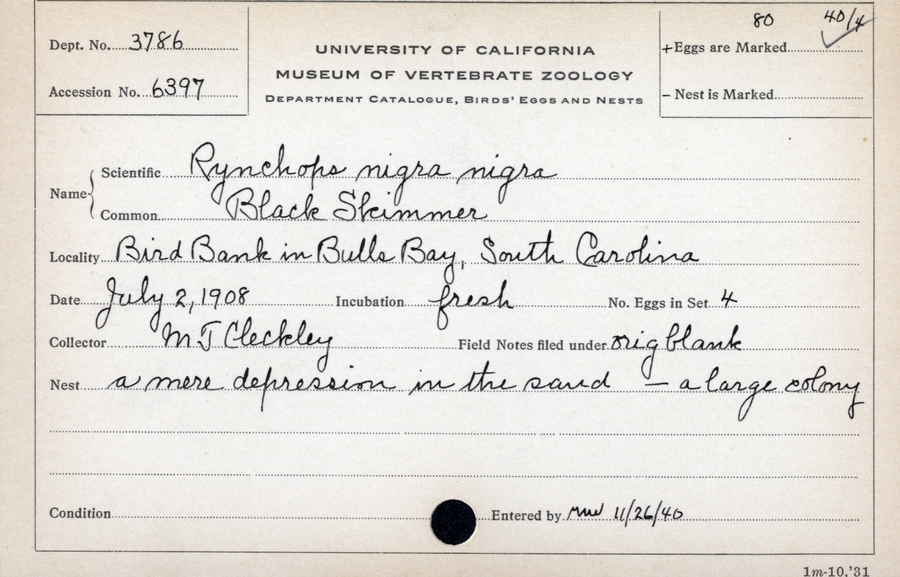 80 40/4
Dept. No. 3786
UNIVERSITY OF CALIFORNIA
+Eggs are Marked
MUSEUM OF VERTEBRATE ZOOLOGY
Accession No. 6397
DEPARTMENT CATALOGUE, BIRDS' EGGS AND NESTS
– Nest is Marked
Name
Scientific Rynchops nigra nigra
Common Black Skimmer
Locality Bird Bank in Bulls Bay, South Carolina
Date July 2, 1908 Incubation fresh No. Eggs in Set 4
Collector M J Cleckley Field Notes filed under orig blank
Nest a mere depression in the sand — a large colony
Condition Entered by MW 11/26/40
1m-10,'31